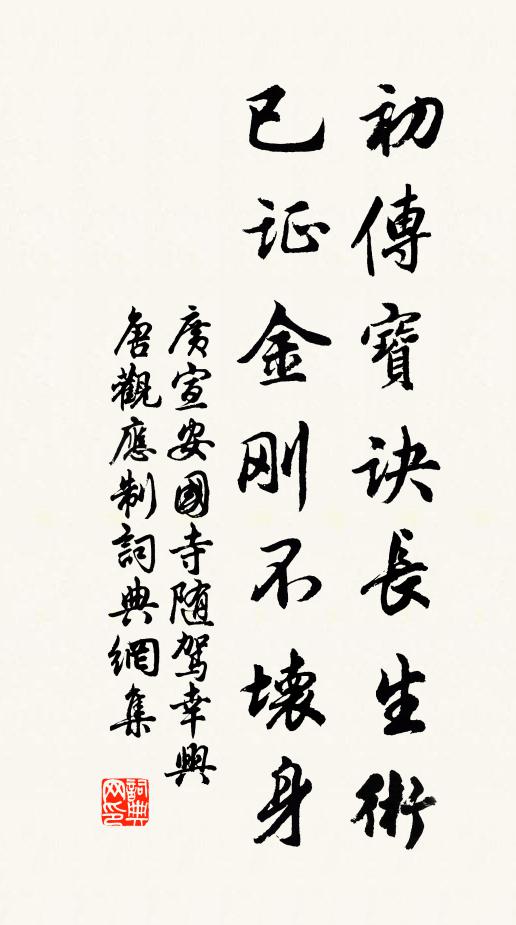 初傳寶訣長生術
已证金刚不壞身
廣宣安國寺随駕幸興
唐觀應制詞典網集
詞典
网印